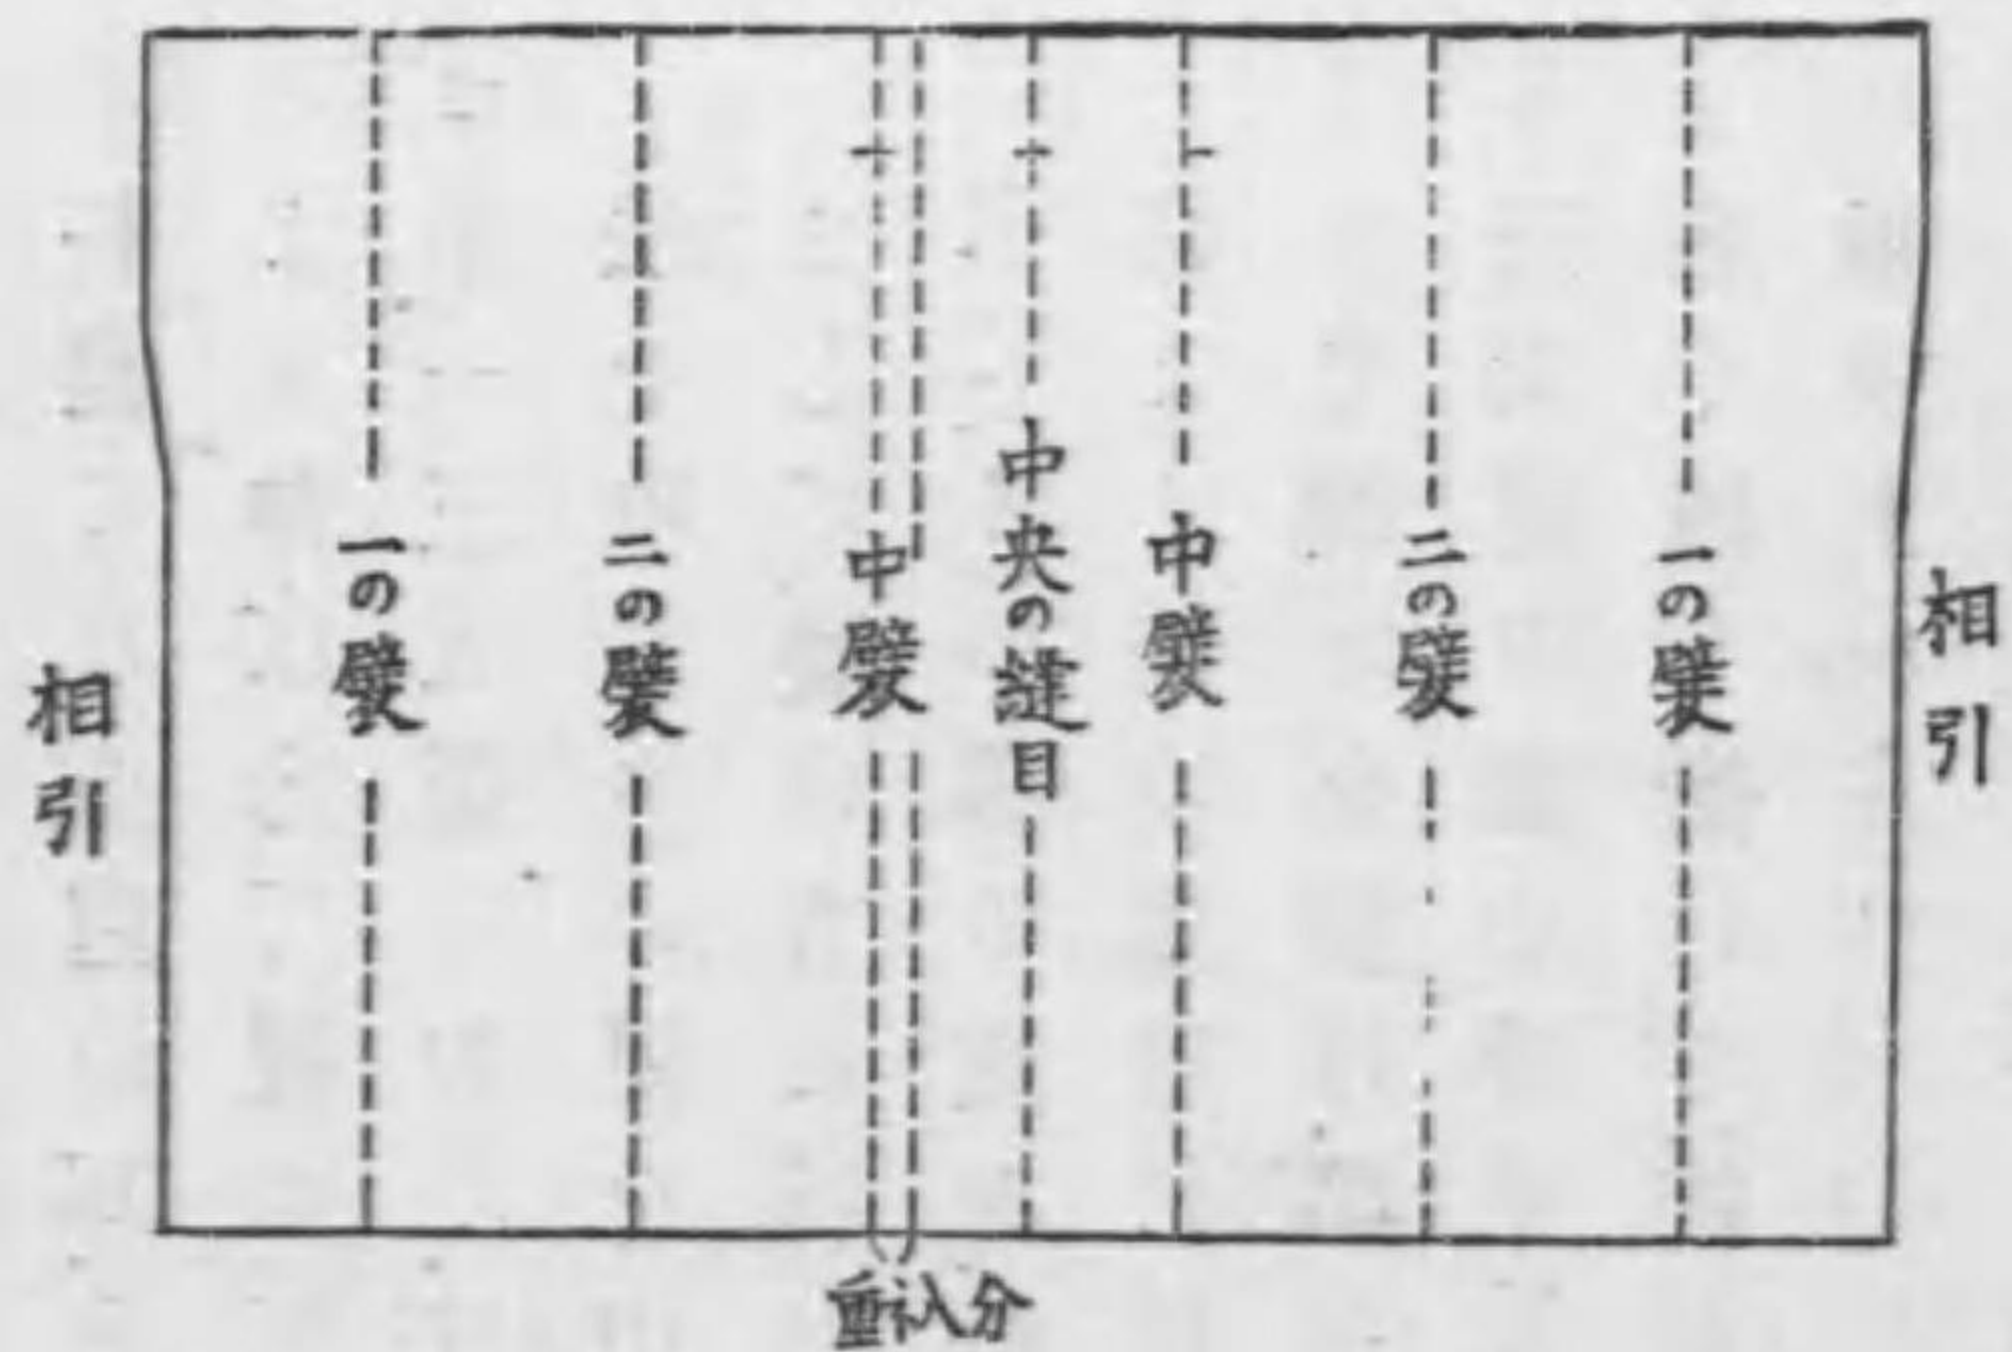 相引
一の襞
二の襞
中襞
中央の縫目
中襞
二の襞
一の襞
相引
重ね分